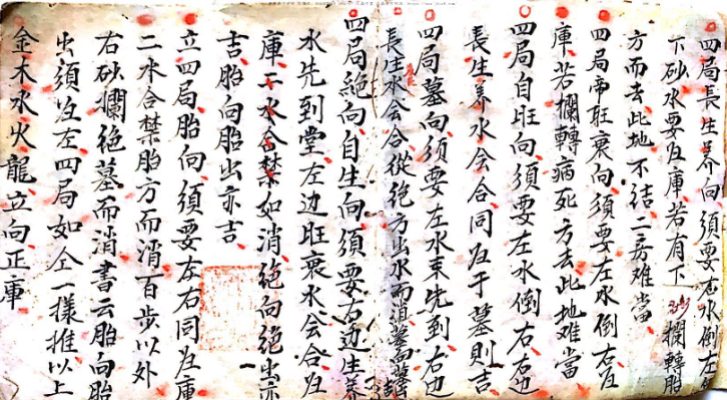 四局長生养向須要右水倒左
下砂水要归庫若有下砂攔轉胎
方而去此地不结二房难當
四局帝旺衰向須要左水倒右归
庫若攔轉病死方去此地难當
四局自旺向須要左水倒右右边
長生养水会合同归于墓則吉
四局墓向須要左水来先到右边
長生水会合從绝方出水而消墓向墓
四局绝向自生向須要右边生养
水先到堂左边旺衰水会合归
庫二水合禁如消绝向绝出亦
吉胎向胎出亦吉
立四局胎向須要左右同归庫
二水合禁胎方而消百步以外
右砂攔绝墓而消書云胎向胎
出須在左四局如仝一樣推以上
金木水火龍立向正庫